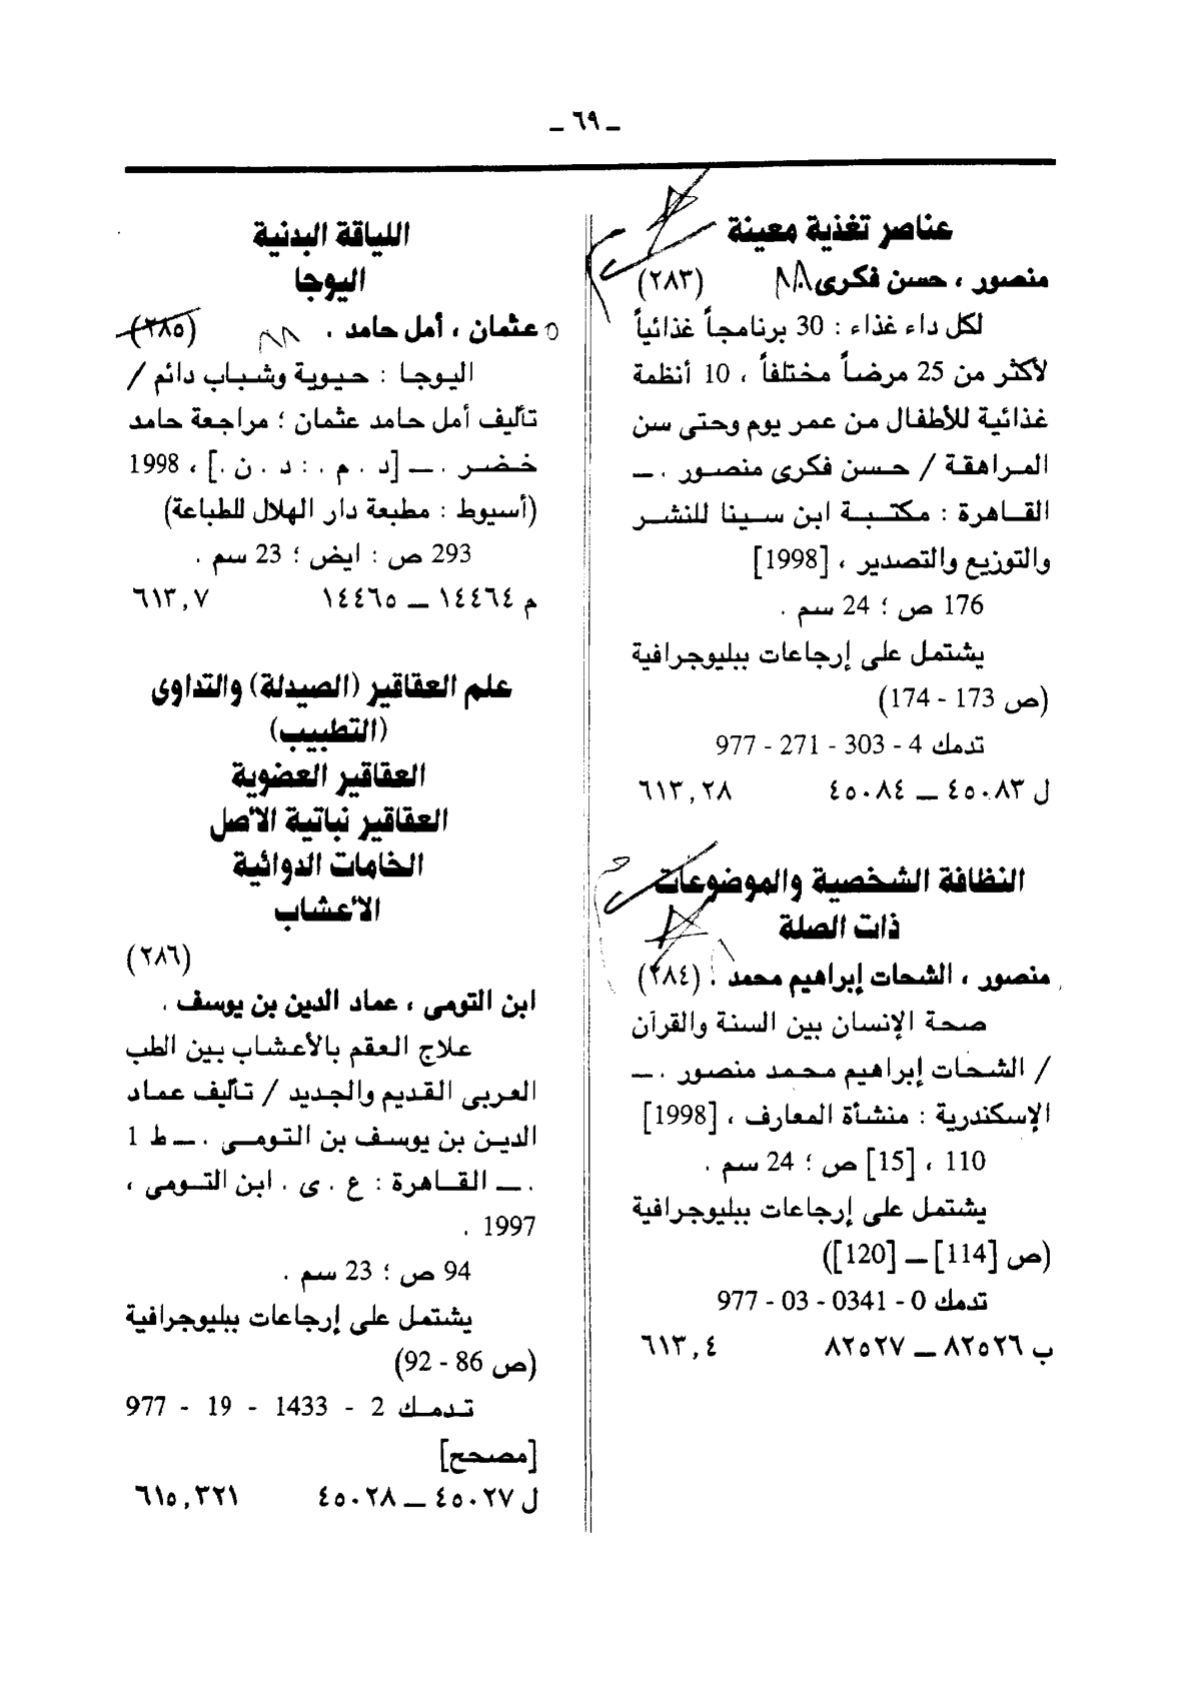 ـ ٦٩ ـ
عناصر تغذية معينة
منصور ، حسن فكرى (٢٨٣)
لكل داء غذاء : 30 برنامجاً غذائياً
لأكثر من 25 مرضاً مختلفاً ، 10 أنظمة
غذائية للأطفال من عمر يوم وحتى سن
المراهقة / حسن فكرى منصور . ـ
القاهرة : مكتبة ابن سينا للنشر
والتوزيع والتصدير ، [1998]
176 ص ؛ 24 سم .
يشتمل على إرجاعات ببليوجرافية
(ص 173 - 174)
تدمك 4 - 303 - 271 - 977
ل ٤٥٠٨٣ ـ ٤٥٠٨٤ ٦١٣,٢٨
النظافة الشخصية والموضوعات
ذات الصلة
منصور ، الشحات إبراهيم محمد . (٢٨٤)
صحة الإنسان بين السنة والقرآن
/ الشحات إبراهيم محمد منصور . ـ
الإسكندرية : منشأة المعارف ، [1998]
110 ، [15] ص ؛ 24 سم .
يشتمل على إرجاعات ببليوجرافية
(ص [114] ـ [120])
تدمك 0 - 0341 - 03 - 977
ب ٨٢٥٢٦ ـ ٨٢٥٢٧ ٦١٣,٤
اللياقة البدنية
اليوجا
عثمان ، أمل حامد . (٢٨٥)
اليوجا : حيوية وشباب دائم /
تأليف أمل حامد عثمان ؛ مراجعة حامد
خضر . ـ [د . م . : د . ن .] ، 1998
(أسيوط : مطبعة دار الهلال للطباعة)
293 ص : ايض ؛ 23 سم .
م ١٤٤٦٤ ـ ١٤٤٦٥ ٦١٣,٧
علم العقاقير (الصيدلة) والتداوى
(التطبيب)
العقاقير العضوية
العقاقير نباتية الأصل
الخامات الدوائية
الأعشاب
(٢٨٦)
ابن التومى ، عماد الدين بن يوسف .
علاج العقم بالأعشاب بين الطب
العربى القديم والجديد / تأليف عماد
الدين بن يوسف بن التومى . ـ ط 1
. ـ القاهرة : ع . ى . ابن التومى ،
1997 .
94 ص ؛ 23 سم .
يشتمل على إرجاعات ببليوجرافية
(ص 86 - 92)
تدمك 2 - 1433 - 19 - 977
[مصحح]
ل ٤٥٠٢٧ ـ ٤٥٠٢٨ ٦١٥,٣٢١